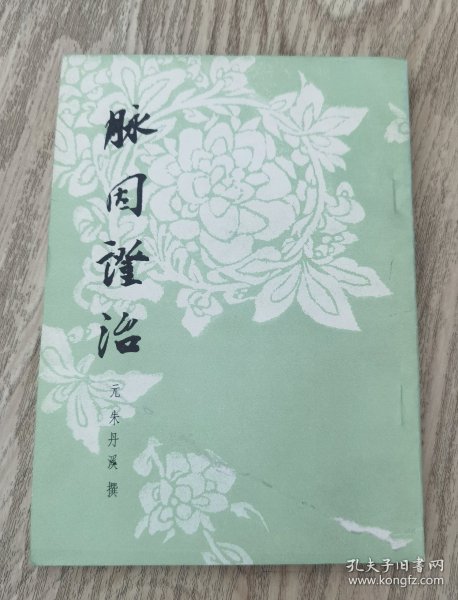 脉因證治
元朱丹溪撰
孔夫子旧书网
www.kongfz.com